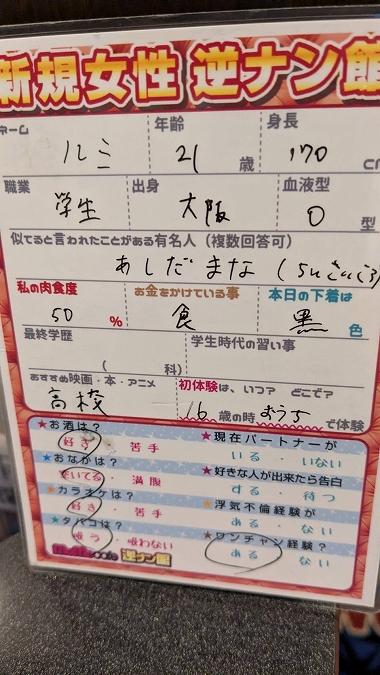 新規女性 逆ナン館
ネーム 年齢 身長
ルミ 21 歳 170 cm
職業 出身 血液型
学生 大阪 O 型
似てると言われたことがある有名人（複数回答可）
あしだまな
私の肉食度 お金をかけている事 本日の下着は
50 % 食 黒 色
最終学歴 学生時代の習い事
（ 科）
おすすめ映画・本・アニメ 初体験は、いつ? どこで?
高校 16 歳の時 おうち で体験
★お酒は? ★現在パートナーが
好き・苦手 いる・いない
★おなかは? ★好きな人が出来たら告白
すいてる・満腹 する・待つ
★カラオケは? ★浮気不倫経験が
好き・苦手 ある・ない
★タバコは? ★ワンチャン経験?
吸う・吸わない ある・ない
逆ナン館